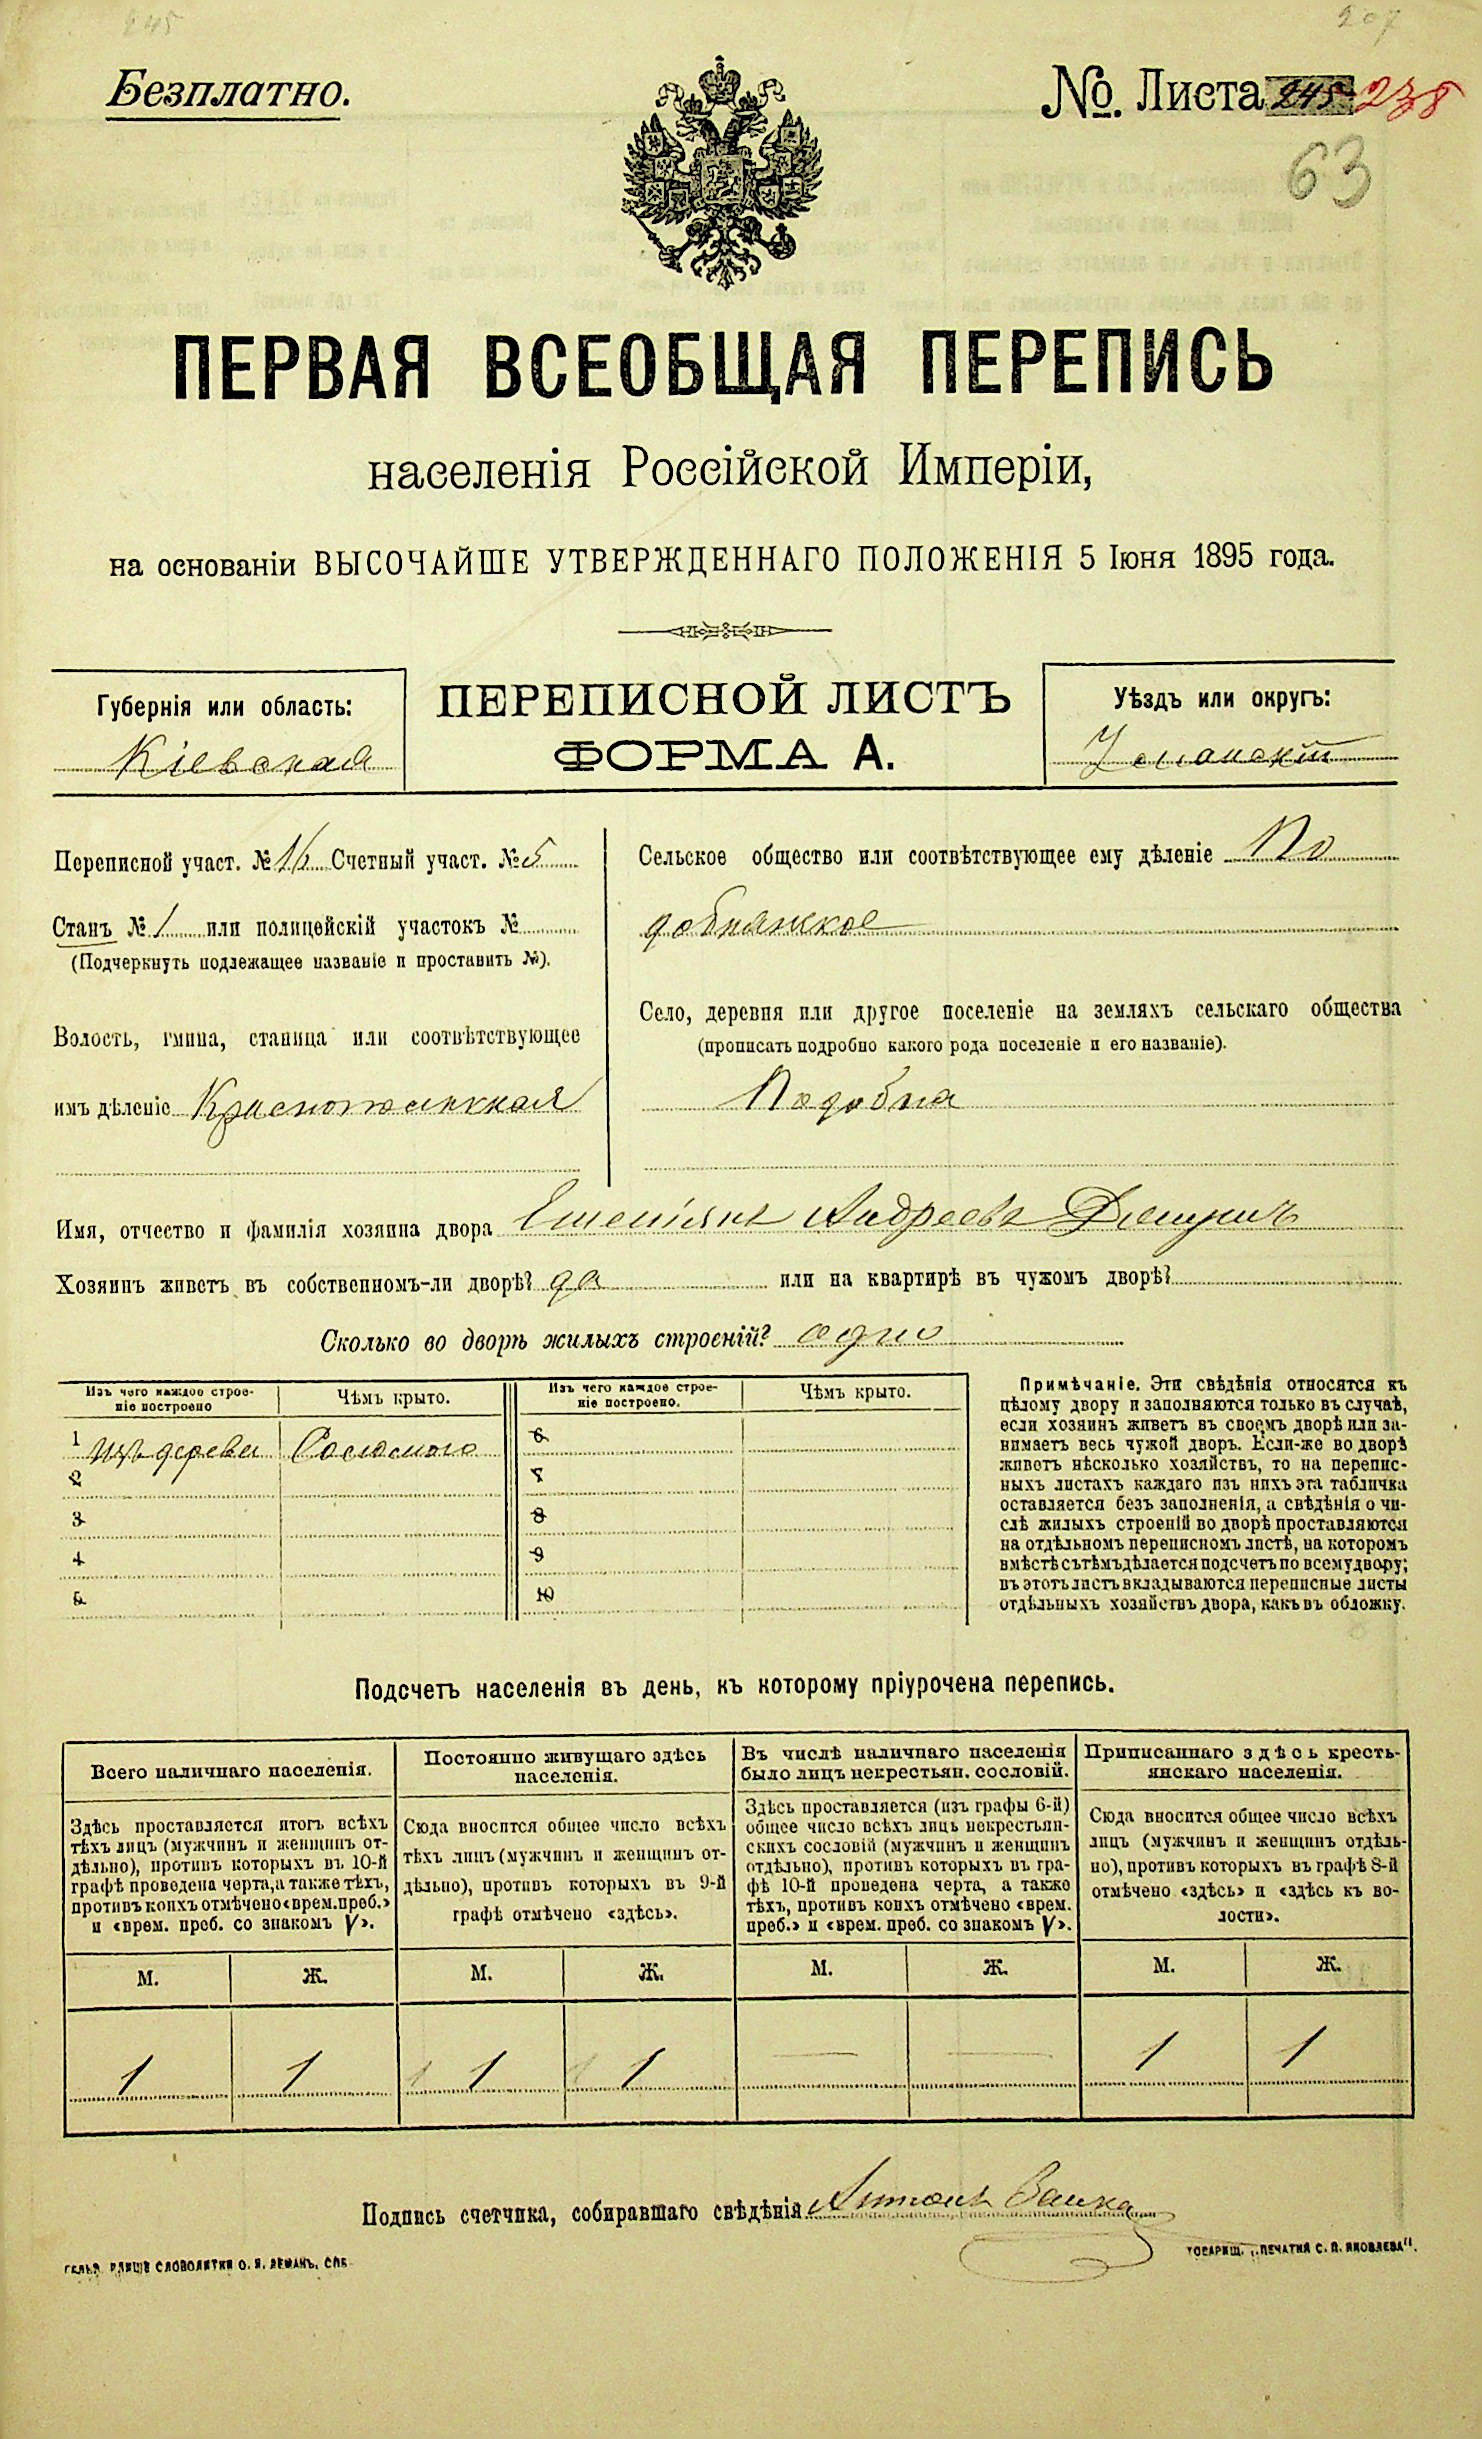 245
207
Безплатно.
№. Листа 245 238
63
ПЕРВАЯ ВСЕОБЩАЯ ПЕРЕПИСЬ
населенія Россійской Имперіи,
на основаніи ВЫСОЧАЙШЕ УТВЕРЖДЕННАГО ПОЛОЖЕНІЯ 5 Іюня 1895 года.
Губернія или область:
Кіевская
ПЕРЕПИСНОЙ ЛИСТЪ
ФОРМА А.
Уѣздъ или округъ:
Уманскій
Переписной участ. № 16 Счетный участ. № 5
Станъ № 1 или полицейскій участокъ №
(Подчеркнуть подлежащее названіе и проставить №).
Волость, гмина, станица или соотвѣтствующее
имъ дѣленіе Краснопольская
Сельское общество или соотвѣтствующее ему дѣленіе По
добнянское
Село, деревня или другое поселеніе на земляхъ сельскаго общества
(прописать подробно какого рода поселеніе и его названіе).
Подобна
Имя, отчество и фамилія хозяина двора Емельянъ Андреевъ
Хозяинъ живетъ въ собственномъ-ли дворѣ? да или на квартирѣ въ чужомъ дворѣ?
Сколько во дворѣ жилыхъ строеній? одно
Изъ чего каждое строе-
ніе построено
Чѣмъ крыто.
Изъ чего каждое строе-
ніе построено.
Чѣмъ крыто.
1 изъ дерева Соломою
2
3
4
5
6
7
8
9
10
Примѣчаніе. Эти свѣдѣнія относятся къ
цѣлому двору и заполняются только въ случаѣ,
если хозяинъ живетъ въ своемъ дворѣ или за-
нимаетъ весь чужой дворъ. Если-же во дворѣ
живетъ нѣсколько хозяйствъ, то на перепис-
ныхъ листахъ каждаго изъ нихъ эта табличка
оставляется безъ заполненія, а свѣдѣнія о чи-
слѣ жилыхъ строеній во дворѣ проставляются
на отдѣльномъ переписномъ листѣ, на которомъ
вмѣстѣ съ тѣмъ дѣлается подсчетъ по всему двору;
въ этотъ листъ вкладываются переписные листы
отдѣльныхъ хозяйствъ двора, какъ въ обложку.
Подсчетъ населенія въ день, къ которому пріурочена перепись.
Всего наличнаго населенія.
Здѣсь проставляется итогъ всѣхъ
тѣхъ лицъ (мужчинъ и женщинъ от-
дѣльно), противъ которыхъ въ 10-й
графѣ проведена черта, а также тѣхъ,
противъ коихъ отмѣчено «врем. преб.»
и «врем. преб. со знакомъ V».
Постоянно живущаго здѣсь
населенія.
Сюда вносится общее число всѣхъ
тѣхъ лицъ (мужчинъ и женщинъ от-
дѣльно), противъ которыхъ въ 9-й
графѣ отмѣчено «здѣсь».
Въ числѣ наличнаго населенія
было лицъ некрестьян. сословій.
Здѣсь проставляется (изъ графы 6-й)
общее число всѣхъ лицъ некрестьян-
скихъ сословій (мужчинъ и женщинъ
отдѣльно), противъ которыхъ въ гра-
фѣ 10-й проведена черта, а также
тѣхъ, противъ коихъ отмѣчено «врем.
преб.» и «врем. преб. со знакомъ V».
Приписаннаго здѣсь кресть-
янскаго населенія.
Сюда вносится общее число всѣхъ
лицъ (мужчинъ и женщинъ отдѣль-
но), противъ которыхъ въ графѣ 8-й
отмѣчено «здѣсь» и «здѣсь къ во-
лости».
М. Ж. М. Ж. М. Ж. М. Ж.
1 1 1 1 — — 1 1
Подпись счетчика, собиравшаго свѣдѣнія Антонъ Заика
СЛОВОЛИТНИ О. И. ЛЕМАНЪ, СПБ
ТОВАРИЩ. „ПЕЧАТНЯ С. П. ЯКОВЛЕВА".